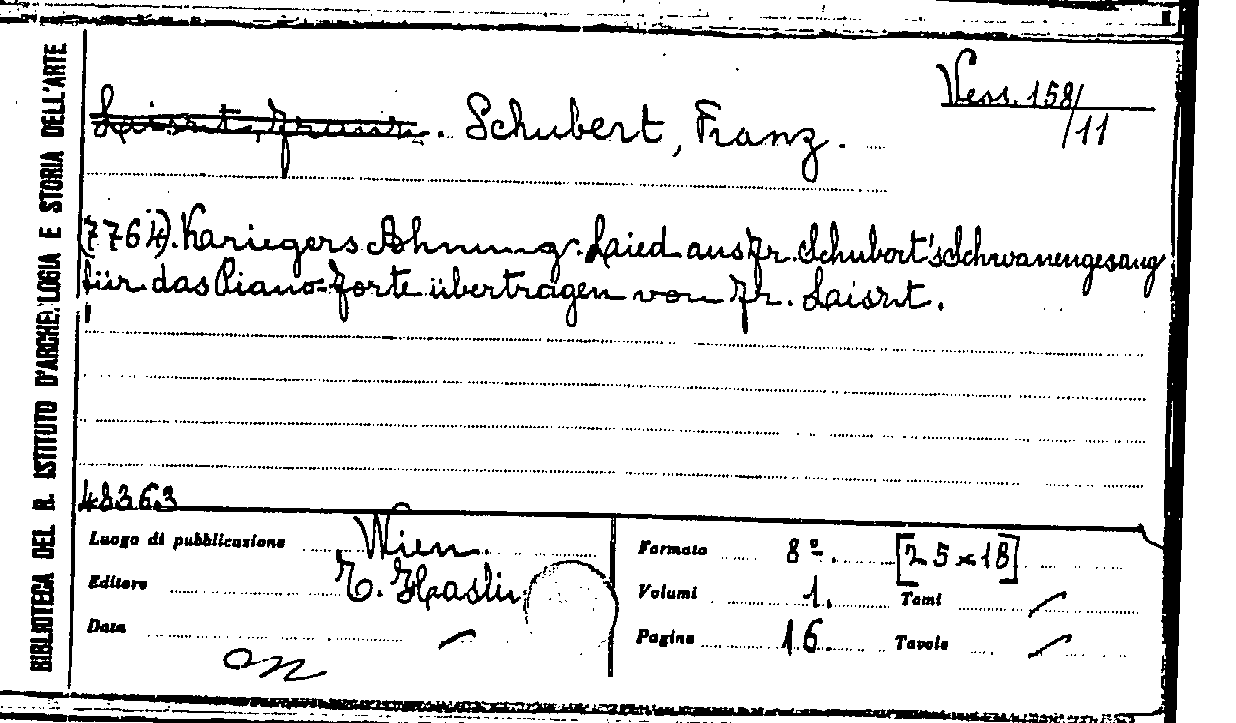 Vess. 158/11
Laisrt, Franz. Schubert, Franz.
(7764). Kariegers Ahnung. Laied aus Fr. Schubort's Schwanengesang
für das Piano-forte übertragen von Fr. Laisrt.
48363
Luogo di pubblicazione Wien.
Editore T. Haslin
Data /
Formato 8º. [25 x 18]
Volumi 1. Tomi /
Pagine 16. Tavole /
BIBLIOTECA DEL R. ISTITUTO D'ARCHEOLOGIA E STORIA DELL'ARTE